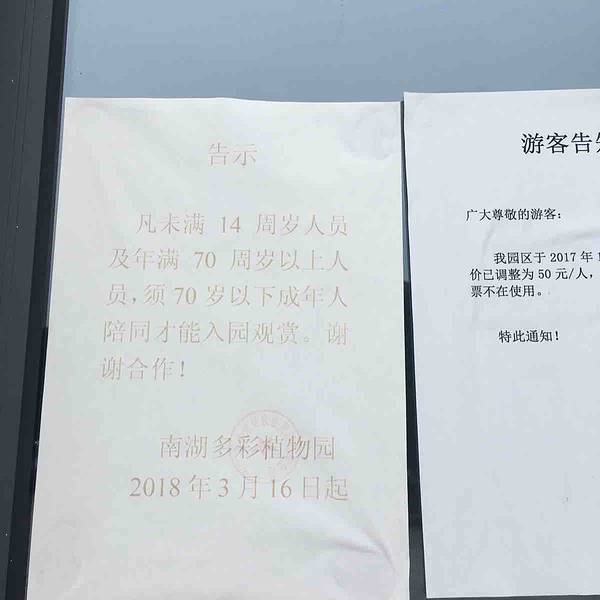 告示
凡未满 14 周岁人员
及年满 70 周岁以上人
员，须 70 岁以下成年人
陪同才能入园观赏。谢
谢合作！
南湖多彩植物园
2018 年 3 月 16 日起
游客告
广大尊敬的游客：
我园区于 2017 年 1
价已调整为 50 元/人，
票不在使用。
特此通知！